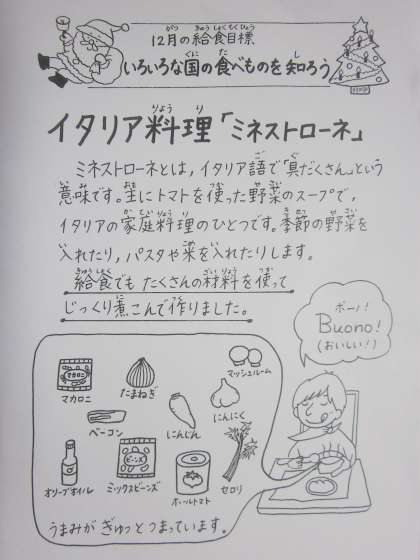 12月の給食目標
いろいろな国の食べものを知ろう
イタリア料理「ミネストローネ」
ミネストローネとは，イタリア語で「具だくさん」という
意味です。主にトマトを使った野菜のスープで，
イタリアの家庭料理のひとつです。季節の野菜を
入れたり，パスタや米を入れたりします。
給食でも たくさんの材料を使って
じっくり煮こんで作りました。
ボーノ!
Buono!
(おいしい!)
マカロニ
マカロニ
たまねぎ
マッシュルーム
ベーコン
にんじん
にんにく
オリーブオイル
ビーンズ
ミックスビーンズ
ホールトマト
セロリ
うまみが ぎゅっと つまっています。